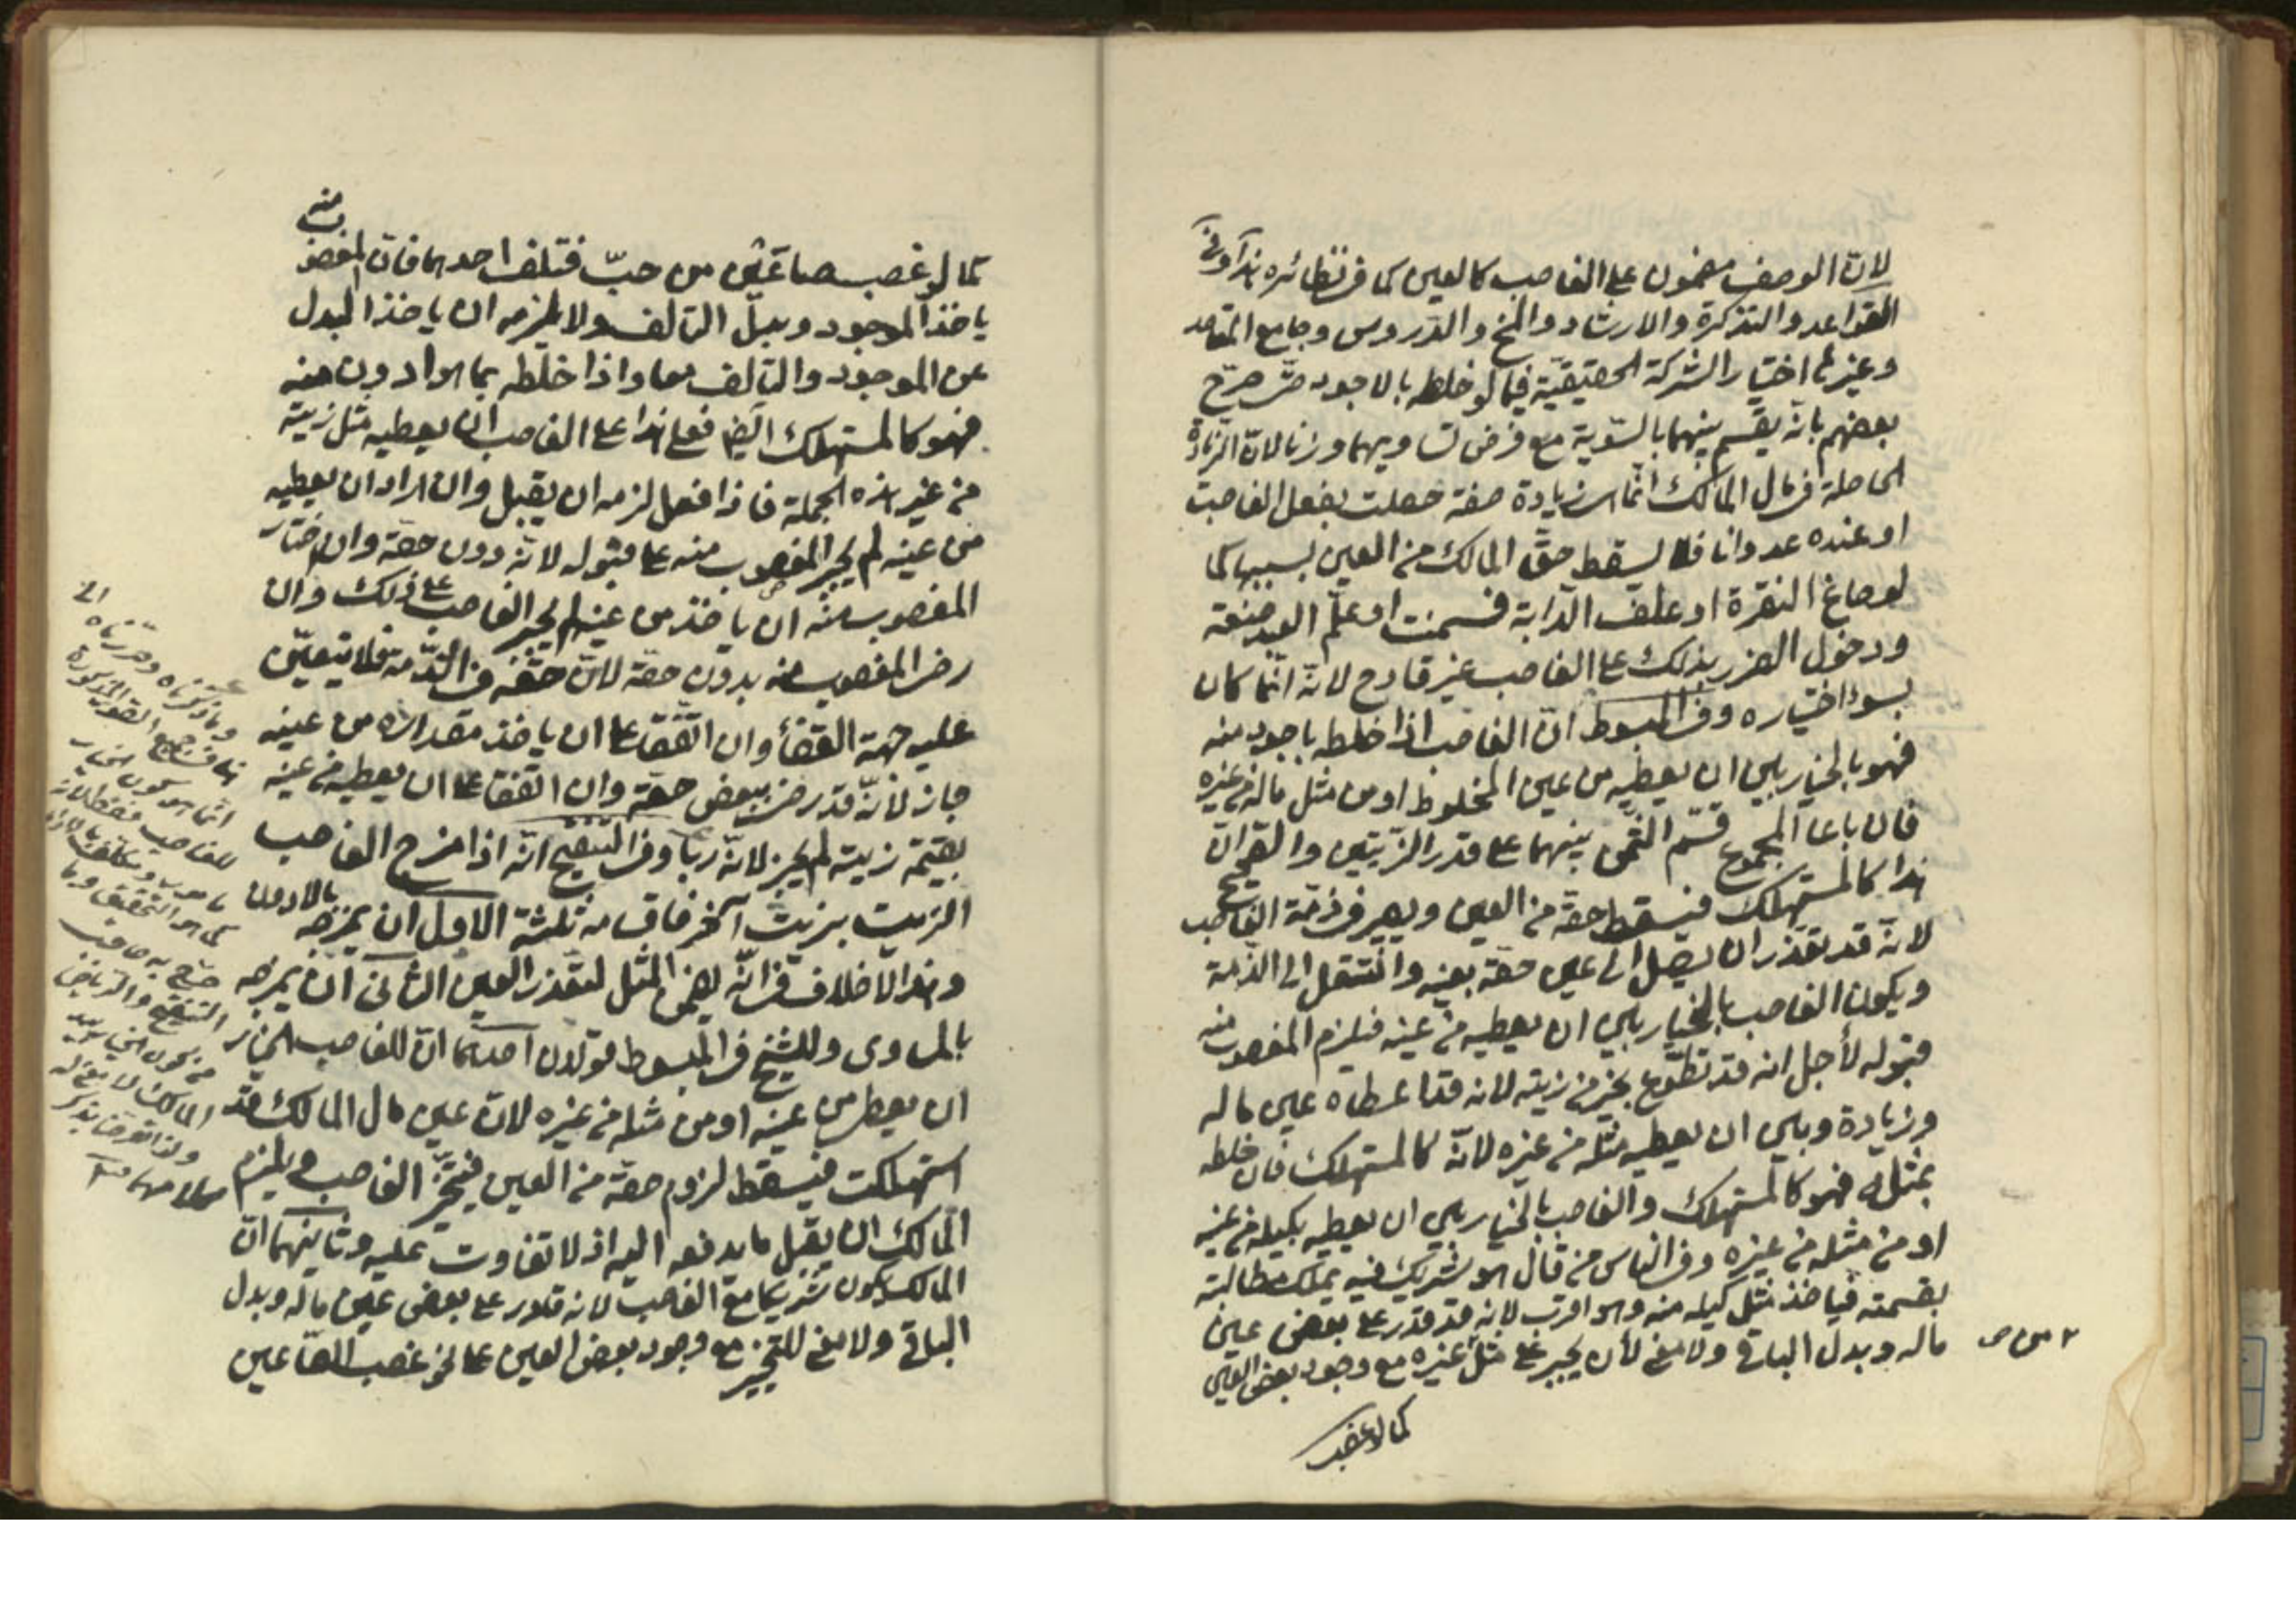 لانّ الوصف مضمون على الغاصب كالعين كما في نظائره هذا وفي
القواعد والتذكرة والارشاد والمخ والدّروس وجامع المقاصد
وغيرها اختيار الشركة الحقيقيّة فيما لو خلطه بالاجود حتى صرّح
بعضهم بانّه يقسم بينهما بالسّوية مع فرض تساويهما وزنا لانّ الزيادة
الحاصلة في مال المالك انّما هي زيادة صفة حصلت بفعل الغاصب
او عنده عدوانا فلا يسقط حقّ المالك من العين بسببها كما
لو صاغ النقرة او علف الدّابة فسمنت او علّم العبد صنعة
ودخول الضرر بذلك على الغاصب غير قادح لانّه انّما كان
بسوء اختياره وفي المبسوط انّ الغاصب اذا خلطه باجود منه
فهو بالخيار بين ان يعطيه من عين المخلوط او من مثل ماله من غيره
فان باعا المجموع قسّم الثّمن بينهما على قدر الزّيتين والصّحيح انّ
هذا كالمستهلك فيسقط حقّه من العين ويصير في ذمّة الغاصب
لانّه قد تعذّر ان يصل الى عين حقّه بعينه وانتقل الى الذّمة
ويكون الغاصب بالخيار بين ان يعطيه من عينه فيلزم المغصوب منه
قبوله لأجل انه قد تطوّع بخير من زيته لانه قد اعطاه عين ماله
وزيادة وبين ان يعطيه مثله من غيره لانّه كالمستهلك فان خلطه
بمثله فهو كالمستهلك والغاصب بالخيار بين ان يعطيه بكيله من عينه
او من مثله من غيره وفي الناس من قال هو شريك فيه يملك مطالبته
بقسمته فيأخذ مثل كيله منه وهو اقرب لانه قد قدر على بعض عين
ماله وبدل الباقي ولا معنى لأن يجبر على مثل غيره مع وجود بعض العين
كما لو غصب
كما لو غصب صاعين من حبّ فتلف احدهما فانّ المغصوب منه
ياخذ الموجود وبدل التالف ولا يلزمه ان ياخذ البدل
عن الموجود والتالف معا واذا خلطه بما هو ادون منه
فهو كالمستهلك ايضا فعلى هذا على الغاصب ان يعطيه مثل زيته
من غير هذه الجملة فاذا فعل لزمه ان يقبل وان اراد ان يعطيه
من عينه لم يجبر المغصوب منه على قبوله لانّه دون حقّه وان اختار
المغصوب منه ان ياخذ من عينه لم يجبر الغاصب على ذلك وان
رضي المغصوب منه بدون حقّه لانّ حقّه في الذّمة فلا يتعيّن
عليه جهة القضاء وان اتّفقا على ان ياخذ مقداره من عينه
جاز لأنّه قد رضي ببعض حقّه وان اتّفقا على ان يعطيه من عينه
بقيمة زيته لم يجز لانّه ربا وفي التنقيح انّه اذا مزج الغاصب
الزيت بزيت آخر فاقسامه ثلثة الاوّل ان يمزجه بالادون
وهذا لا خلاف في انّه يضمن المثل لتعذّر العين الثّاني ان يمزجه
بالمساوى وللشيخ في المبسوط قولان احدهما انّ للغاصب الخيار
ان يعطي من عينه او من مثله من غيره لانّ عين مال المالك قد
استهلكت فيسقط لزوم حقّه من العين فيتخيّر الغاصب ويلزم
المالك ان يقبل ما يدفعه اليه اذ لا تفاوت عليه وثانيهما انّ
المالك يكون شريكا مع الغاصب لانه قادر على بعض عين ماله وبدل
الباقي ولا معنى للتخيير مع وجود بعض العين كما لو غصب الصّاعين
وما ذكرناه وحرّرناه
في جميع الصّور المذكورة
انّما هو كون الخيار
للغاصب فقط لانّه
كما هو التحقيق وبما
صرّح به صاحب
التنقيح والرياض
من كون الخيار بيد
المالك لا معنى له